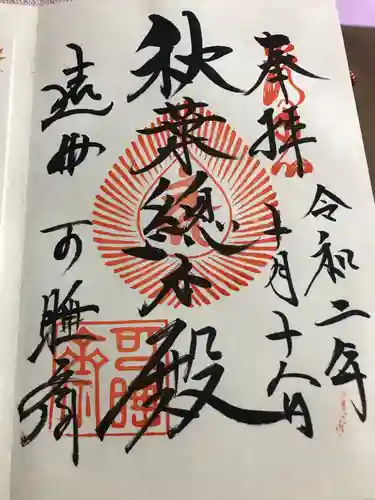 奉拝
令和二年
十月十八日
秋葉総本殿
遠州 可睡斎